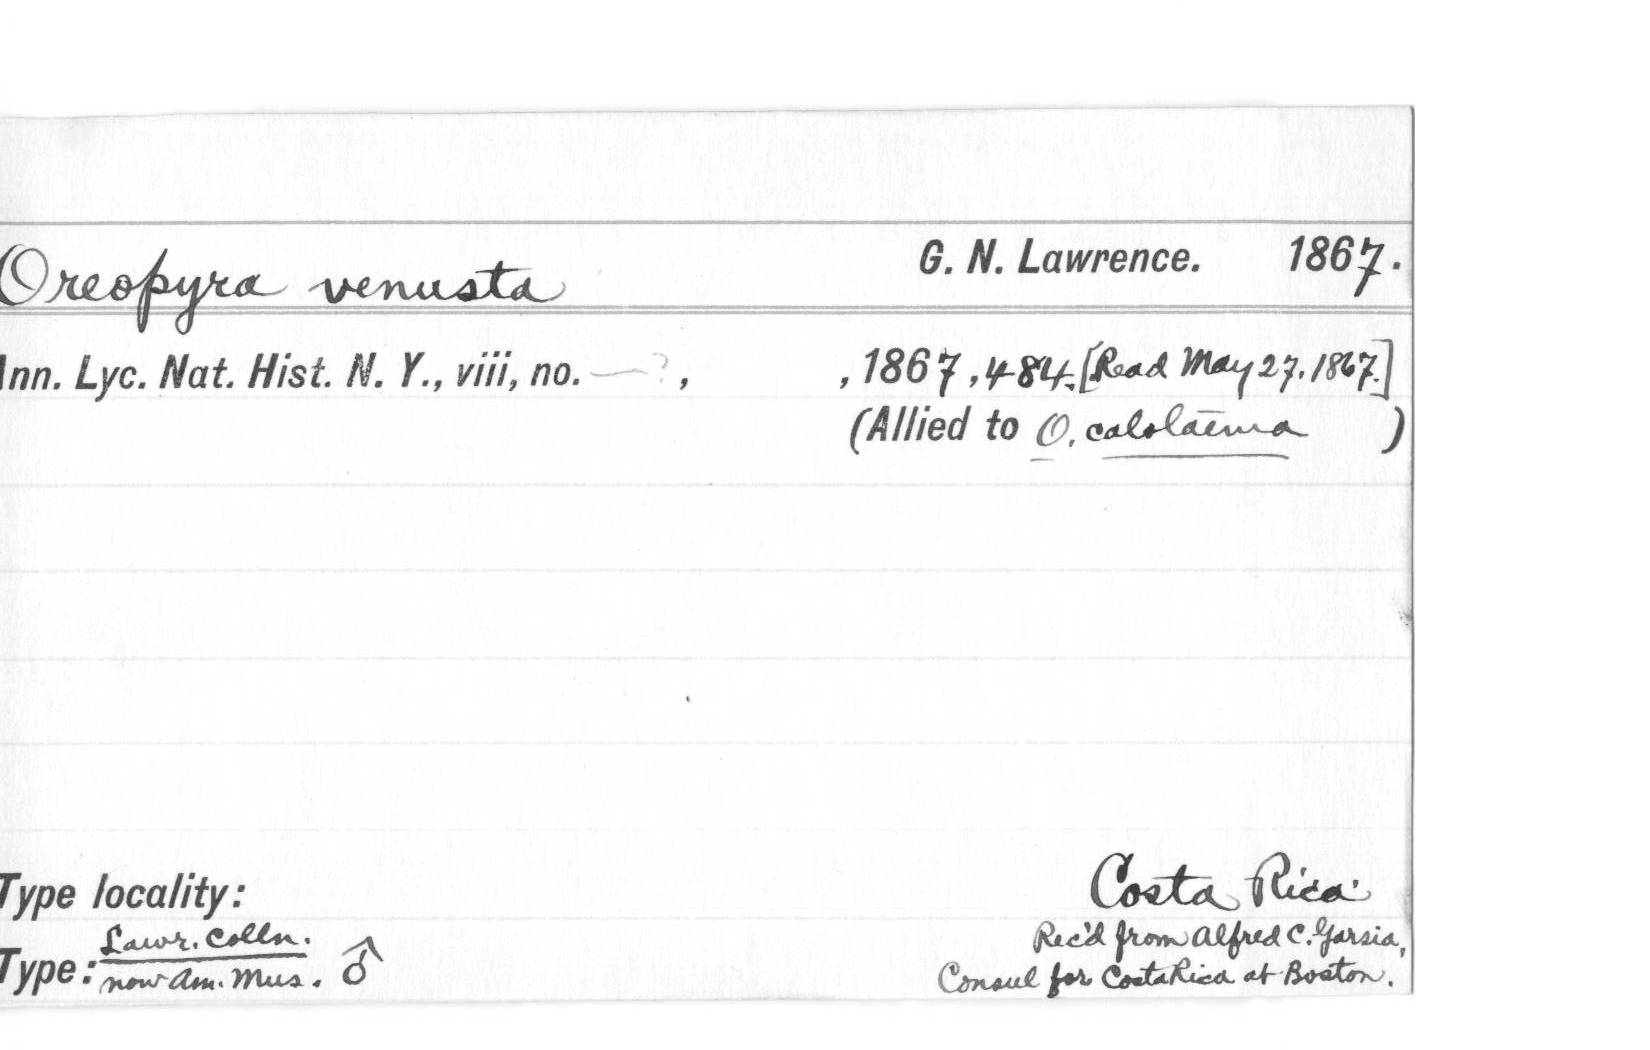 Oreopyra venusta G. N. Lawrence. 1867.
Ann. Lyc. Nat. Hist. N. Y., viii, no. —? , , 1867, 484. [Read May 27, 1867.]
(Allied to O. calolaema )
Type locality: Costa Rica.
Rec'd from Alfred C. Garsia,
Type: Lawr. Colln.
now Am. Mus. ♂ Consul for Costa Rica at Boston.